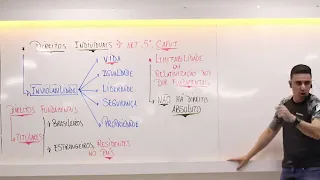 DIREITOS INDIVIDUAIS → ART. 5º, CAPUT
VIDA
IGUALDADE
LIBERDADE
SEGURANÇA
PROPRIEDADE
INVIOLABILIDADE
DIREITOS FUNDAMENTAIS
TITULARES
BRASILEIROS
ESTRANGEIROS RESIDENTES
NO PAÍS
LIMITABILIDADE
OU
RELATIVIZAÇÃO DOS
DIR. FUNDAMENTAIS
NÃO HÁ DIREITO
ABSOLUTO